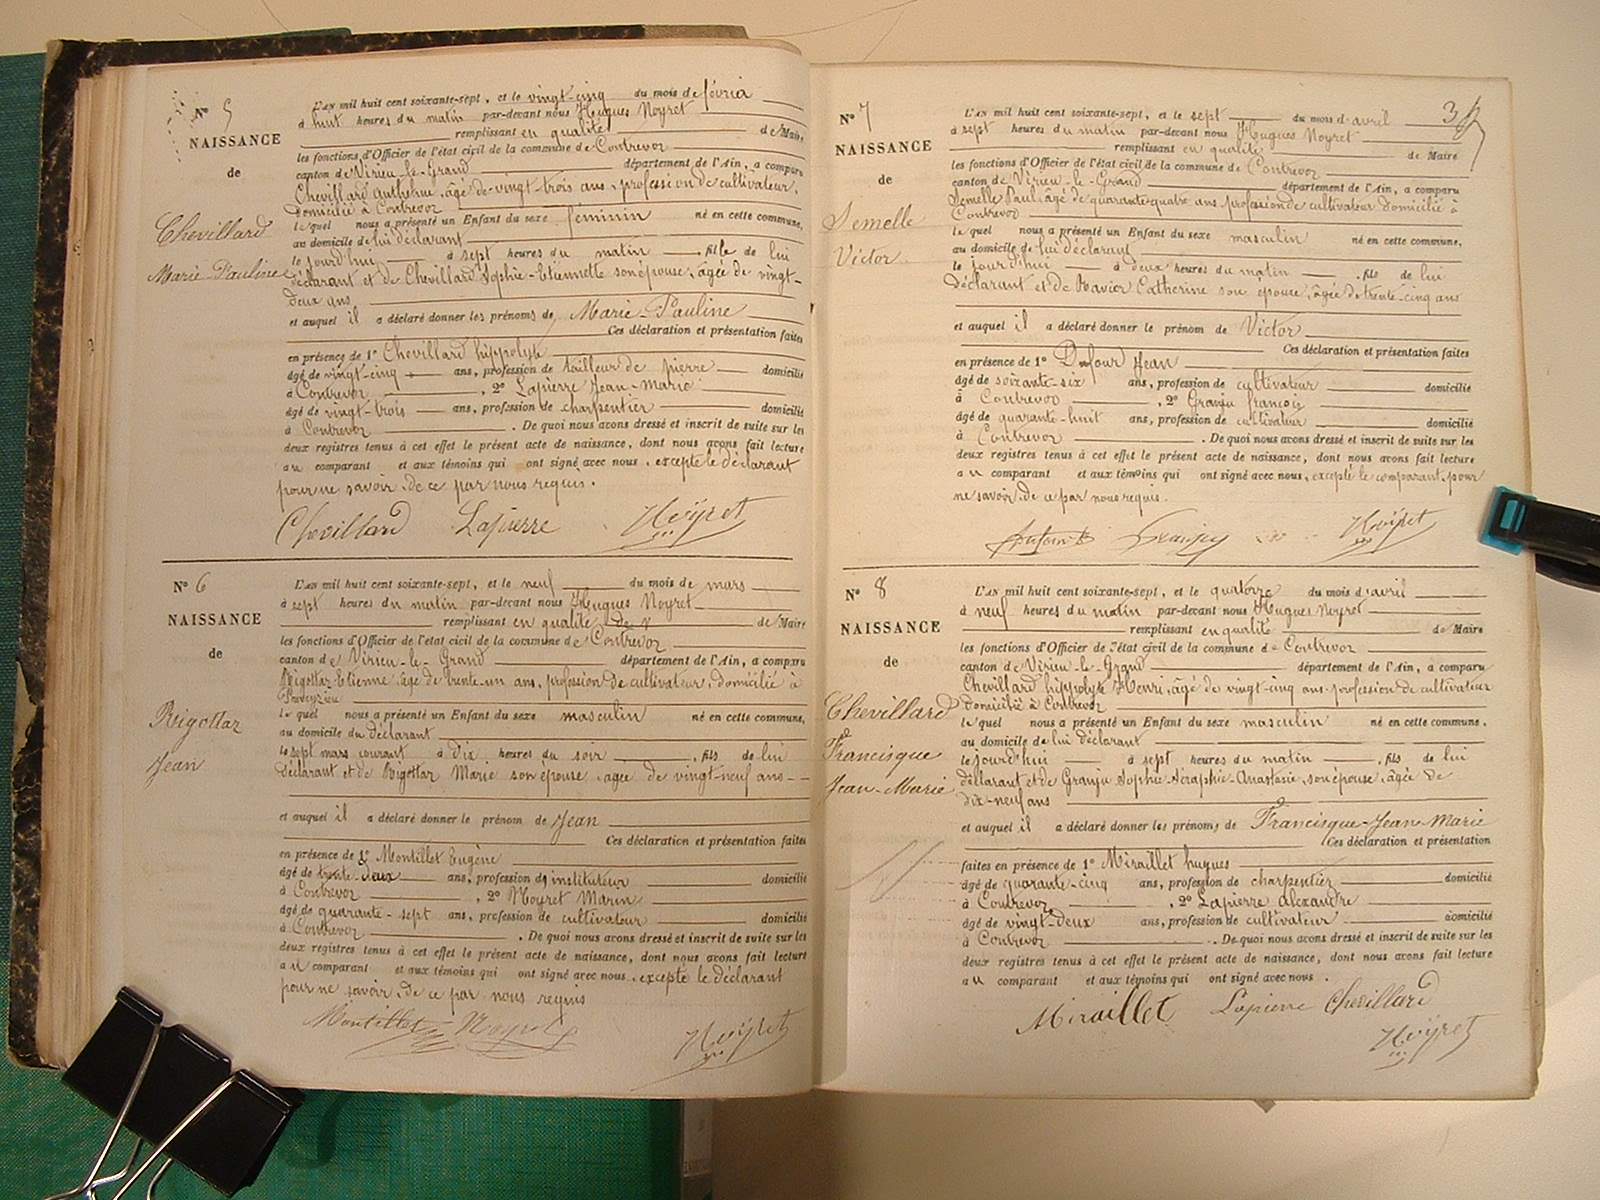 N° 5
NAISSANCE
de
Chevillard
Marie-Pauline
L'AN mil huit cent soixante-sept, et le vingt-cinq du mois de février
à huit heures du matin par-devant nous Hugues Noyret
remplissant en qualité de Maire
les fonctions d'Officier de l'état civil de la commune de Contrevoz
canton de Virieu-le-Grand département de l'Ain, a comparu
Chevillard Anthelme, âgé de vingt-trois ans, profession de cultivateur,
domicilié à Contrevoz
lequel nous a présenté un Enfant du sexe féminin né en cette commune,
au domicile de lui déclarant
le jourd'hui à sept heures du matin fille de lui
déclarant et de Chevillard Sophie-Etiennette son épouse, âgée de vingt-
deux ans
et auquel il a déclaré donner les prénoms de Marie-Pauline
Ces déclaration et présentation faites
en présence de 1° Chevillard hippolyte
âgé de vingt-cinq ans, profession de tailleur de pierre domicilié
à Contrevoz, 2° Lapierre Jean-Marie
âgé de vingt-trois ans, profession de charpentier domicilié
à Contrevoz. De quoi nous avons dressé et inscrit de suite sur les
deux registres tenus à cet effet le présent acte de naissance, dont nous avons fait lecture
au comparant et aux témoins qui ont signé avec nous, excepté le déclarant
pour ne savoir, de ce par nous requis.
Chevillard Lapierre Noÿret
N° 6
NAISSANCE
de
Rigottaz
Jean
L'AN mil huit cent soixante-sept, et le neuf du mois de mars
à sept heures du matin par-devant nous Hugues Noyret
remplissant en qualité de Maire
les fonctions d'Officier de l'état civil de la commune de Contrevoz
canton de Virieu-le-Grand département de l'Ain, a comparu
Rigottaz Etienne, âgé de trente-un ans, profession de cultivateur, domicilié à
lequel nous a présenté un Enfant du sexe masculin né en cette commune,
au domicile du déclarant
le sept mars courant à dix heures du soir, fils de lui
déclarant et de Rigottaz Marie son épouse, âgée de vingt-neuf ans
et auquel il a déclaré donner le prénom de Jean
Ces déclaration et présentation faites
en présence de 1° Montillet Eugène
âgé de trente-deux ans, profession d'instituteur domicilié
à Contrevoz, 2° Noyret Marin
âgé de quarante-sept ans, profession de cultivateur domicilié
à Contrevoz. De quoi nous avons dressé et inscrit de suite sur les
deux registres tenus à cet effet le présent acte de naissance, dont nous avons fait lecture
au comparant et aux témoins qui ont signé avec nous, excepté le déclarant
pour ne savoir, de ce par nous requis
Montillet Noyret Noÿret
3
N° 7
NAISSANCE
de
Semelle
Victor
L'AN mil huit cent soixante-sept, et le sept du mois d'avril
à sept heures du matin par-devant nous Hugues Noyret
remplissant en qualité de Maire
les fonctions d'Officier de l'état civil de la commune de Contrevoz
canton de Virieu-le-Grand département de l'Ain, a comparu
Semelle Paul, âgé de quarante-quatre ans, profession de cultivateur domicilié à
Contrevoz
lequel nous a présenté un Enfant du sexe masculin né en cette commune,
au domicile de lui déclarant
le jourd'hui à deux heures du matin, fils de lui
déclarant et de Ravier Catherine son épouse, âgée de trente-cinq ans
et auquel il a déclaré donner le prénom de Victor
Ces déclaration et présentation faites
en présence de 1° Dufour Jean
âgé de soixante-six ans, profession de cultivateur domicilié
à Contrevoz, 2° Granju françois
âgé de quarante-huit ans, profession de cultivateur domicilié
à Contrevoz. De quoi nous avons dressé et inscrit de suite sur les
deux registres tenus à cet effet le présent acte de naissance, dont nous avons fait lecture
au comparant et aux témoins qui ont signé avec nous, excepté le comparant, pour
ne savoir, de ce par nous requis.
Noÿret
N° 8
NAISSANCE
de
Chevillard
Francisque
Jean-Marie
L'AN mil huit cent soixante-sept, et le quatorze du mois d'avril
à neuf heures du matin par-devant nous Hugues Noyret
remplissant en qualité de Maire
les fonctions d'Officier de l'état civil de la commune de Contrevoz
canton de Virieu-le-Grand département de l'Ain, a comparu
Chevillard hippolyte Henri, âgé de vingt-cinq ans profession de cultivateur
domicilié à Contrevoz
lequel nous a présenté un Enfant du sexe masculin né en cette commune,
au domicile de lui déclarant
le jourd'hui à sept heures du matin, fils de lui
déclarant et de Granju Sophie-Séraphie-Anastasie, son épouse, âgée de
dix-neuf ans
et auquel il a déclaré donner les prénoms de Francisque-Jean-Marie
Ces déclaration et présentation
faites en présence de 1° Miraillet hugues
âgé de quarante-cinq ans, profession de charpentier domicilié
à Contrevoz, 2° Lapierre alexandre
âgé de vingt-deux ans, profession de cultivateur domicilié
à Contrevoz. De quoi nous avons dressé et inscrit de suite sur les
deux registres tenus à cet effet le présent acte de naissance, dont nous avons fait lecture
au comparant et aux témoins qui ont signé avec nous.
Miraillet Lapierre Chevillard
Noÿret